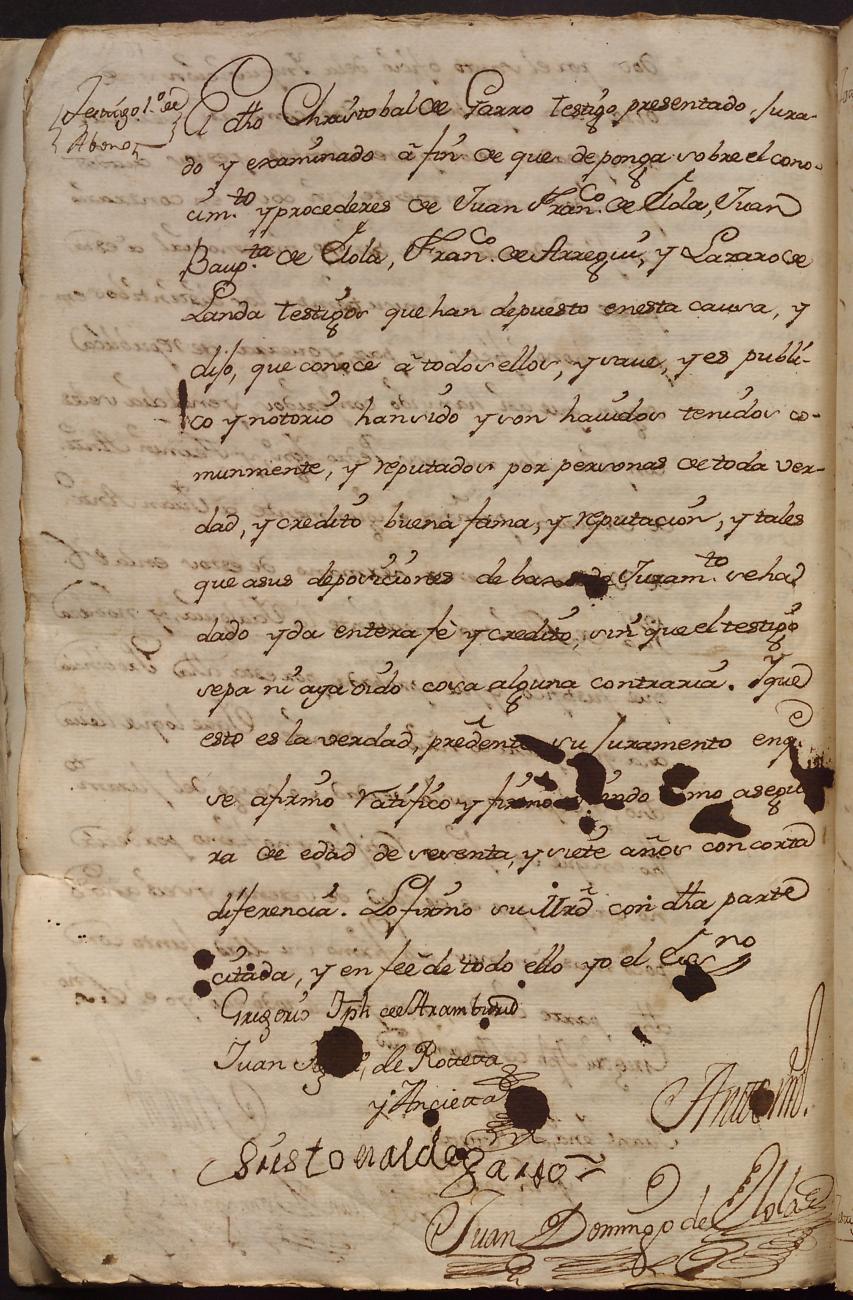 Testigo 1.º de
Abono
El dho Christobal de Garro testigo presentado, Jura-
do y examinado â fin de que deponga sobre el cono-
cim.to y procederes de Juan Fran.co de Elola, Juan
Baup.ta de Elola, Fran.co de Arregui, y Lazaro de
Landa testigos que han depuesto en esta causa, y
dijo, que conoce â todos ellos, y save, y es publi-
co y notorio han sido y son havidos tenidos co-
munmente, y reputados por personas de toda ver-
dad, y credito buena fama, y reputacion, y tales
que a sus deposiciones de baxo de Juram.to se ha
dado y da entera fè y credito, sin que el testigo
sepa ni aya oido cosa alguna contraria. Y que
esto es la verdad, so su Juramento en q.e
se afirmo ratifico y firmo siendo como asegu
ra de edad de sesenta, y siete años con corta
diferencia. Lo firmo su Mrd con dha parte
citada, y en feè de todo ello yo el Es.no
Gregorio Jph de Aramburu
Juan de Roteta
y Ancieta
Antemi.
Cristobal de garro
Juan Domingo de Elola